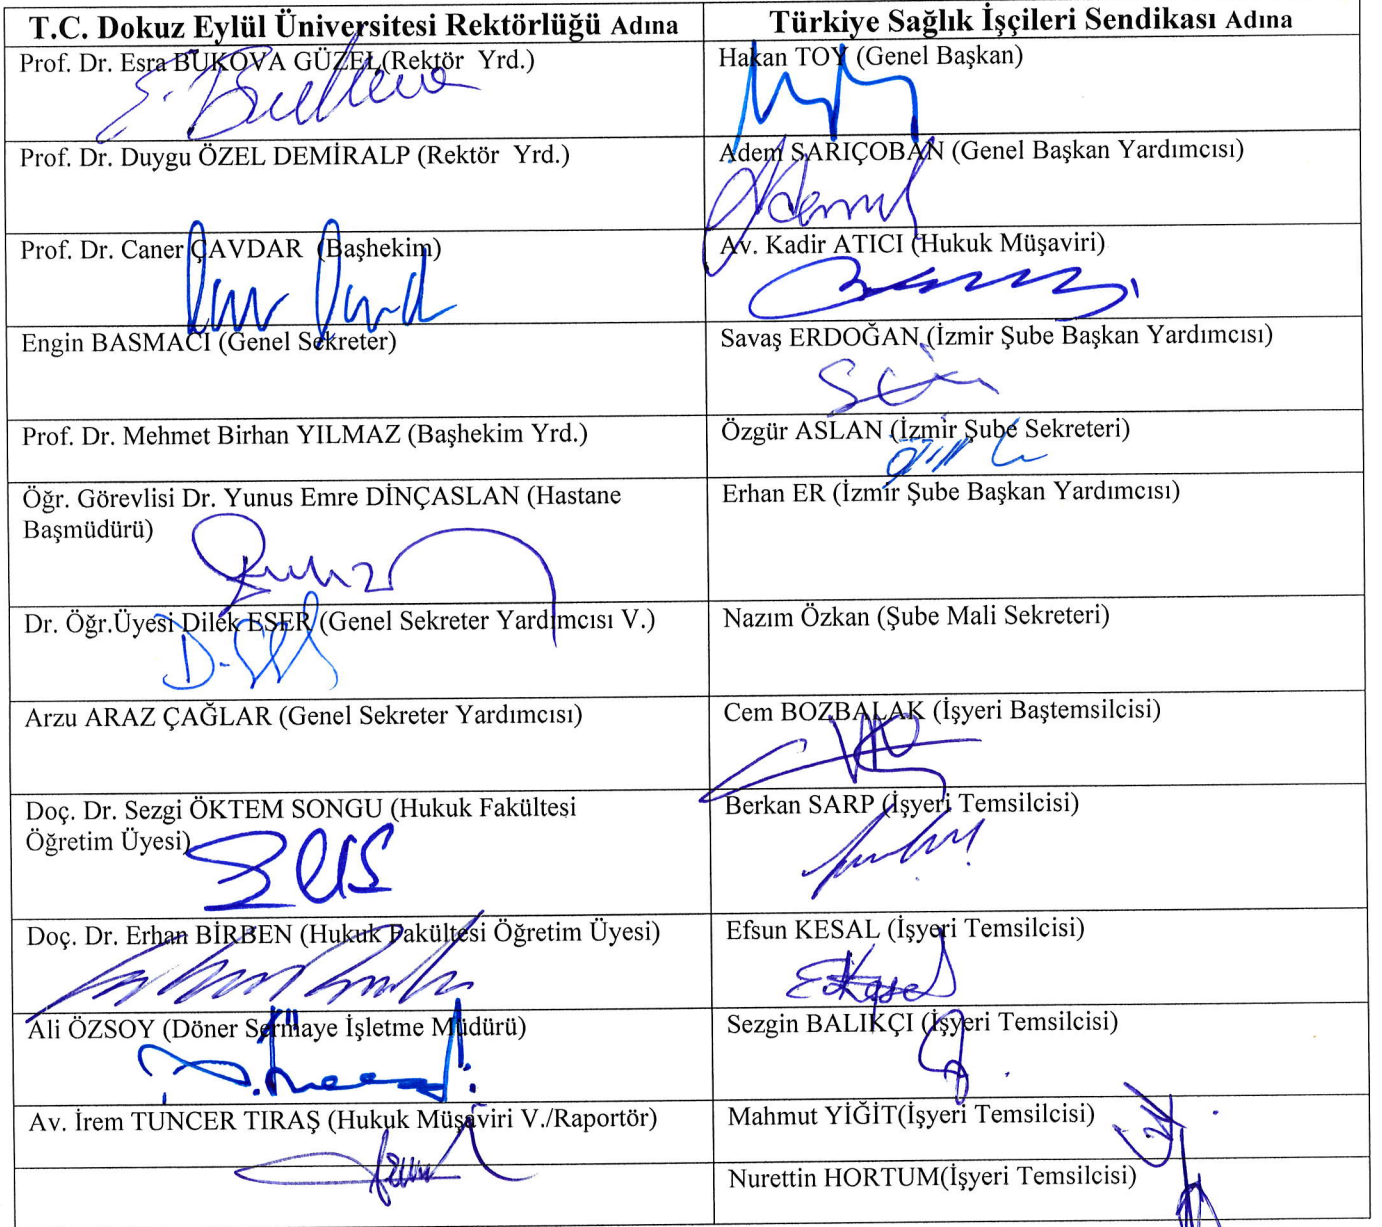 T.C. Dokuz Eylül Üniversitesi Rektörlüğü Adına
Türkiye Sağlık İşçileri Sendikası Adına
Prof. Dr. Esra BUKOVA GÜZEL(Rektör Yrd.)
Hakan TOY (Genel Başkan)
Prof. Dr. Duygu ÖZEL DEMİRALP (Rektör Yrd.)
Adem SARIÇOBAN (Genel Başkan Yardımcısı)
Prof. Dr. Caner ÇAVDAR (Başhekim)
Av. Kadir ATICI (Hukuk Müşaviri)
Engin BASMACI (Genel Sekreter)
Savaş ERDOĞAN (İzmir Şube Başkan Yardımcısı)
Prof. Dr. Mehmet Birhan YILMAZ (Başhekim Yrd.)
Özgür ASLAN (İzmir Şube Sekreteri)
Öğr. Görevlisi Dr. Yunus Emre DİNÇASLAN (Hastane
Başmüdürü)
Erhan ER (İzmir Şube Başkan Yardımcısı)
Dr. Öğr.Üyesi Dilek ESER (Genel Sekreter Yardımcısı V.)
Nazım Özkan (Şube Mali Sekreteri)
Arzu ARAZ ÇAĞLAR (Genel Sekreter Yardımcısı)
Cem BOZBALAK (İşyeri Baştemsilcisi)
Doç. Dr. Sezgi ÖKTEM SONGU (Hukuk Fakültesi
Öğretim Üyesi)
Berkan SARP (İşyeri Temsilcisi)
Doç. Dr. Erhan BİRBEN (Hukuk Fakültesi Öğretim Üyesi)
Efsun KESAL (İşyeri Temsilcisi)
Ali ÖZSOY (Döner Sermaye İşletme Müdürü)
Sezgin BALIKÇI (İşyeri Temsilcisi)
Av. İrem TUNCER TIRAŞ (Hukuk Müşaviri V./Raportör)
Mahmut YİĞİT(İşyeri Temsilcisi)
Nurettin HORTUM(İşyeri Temsilcisi)